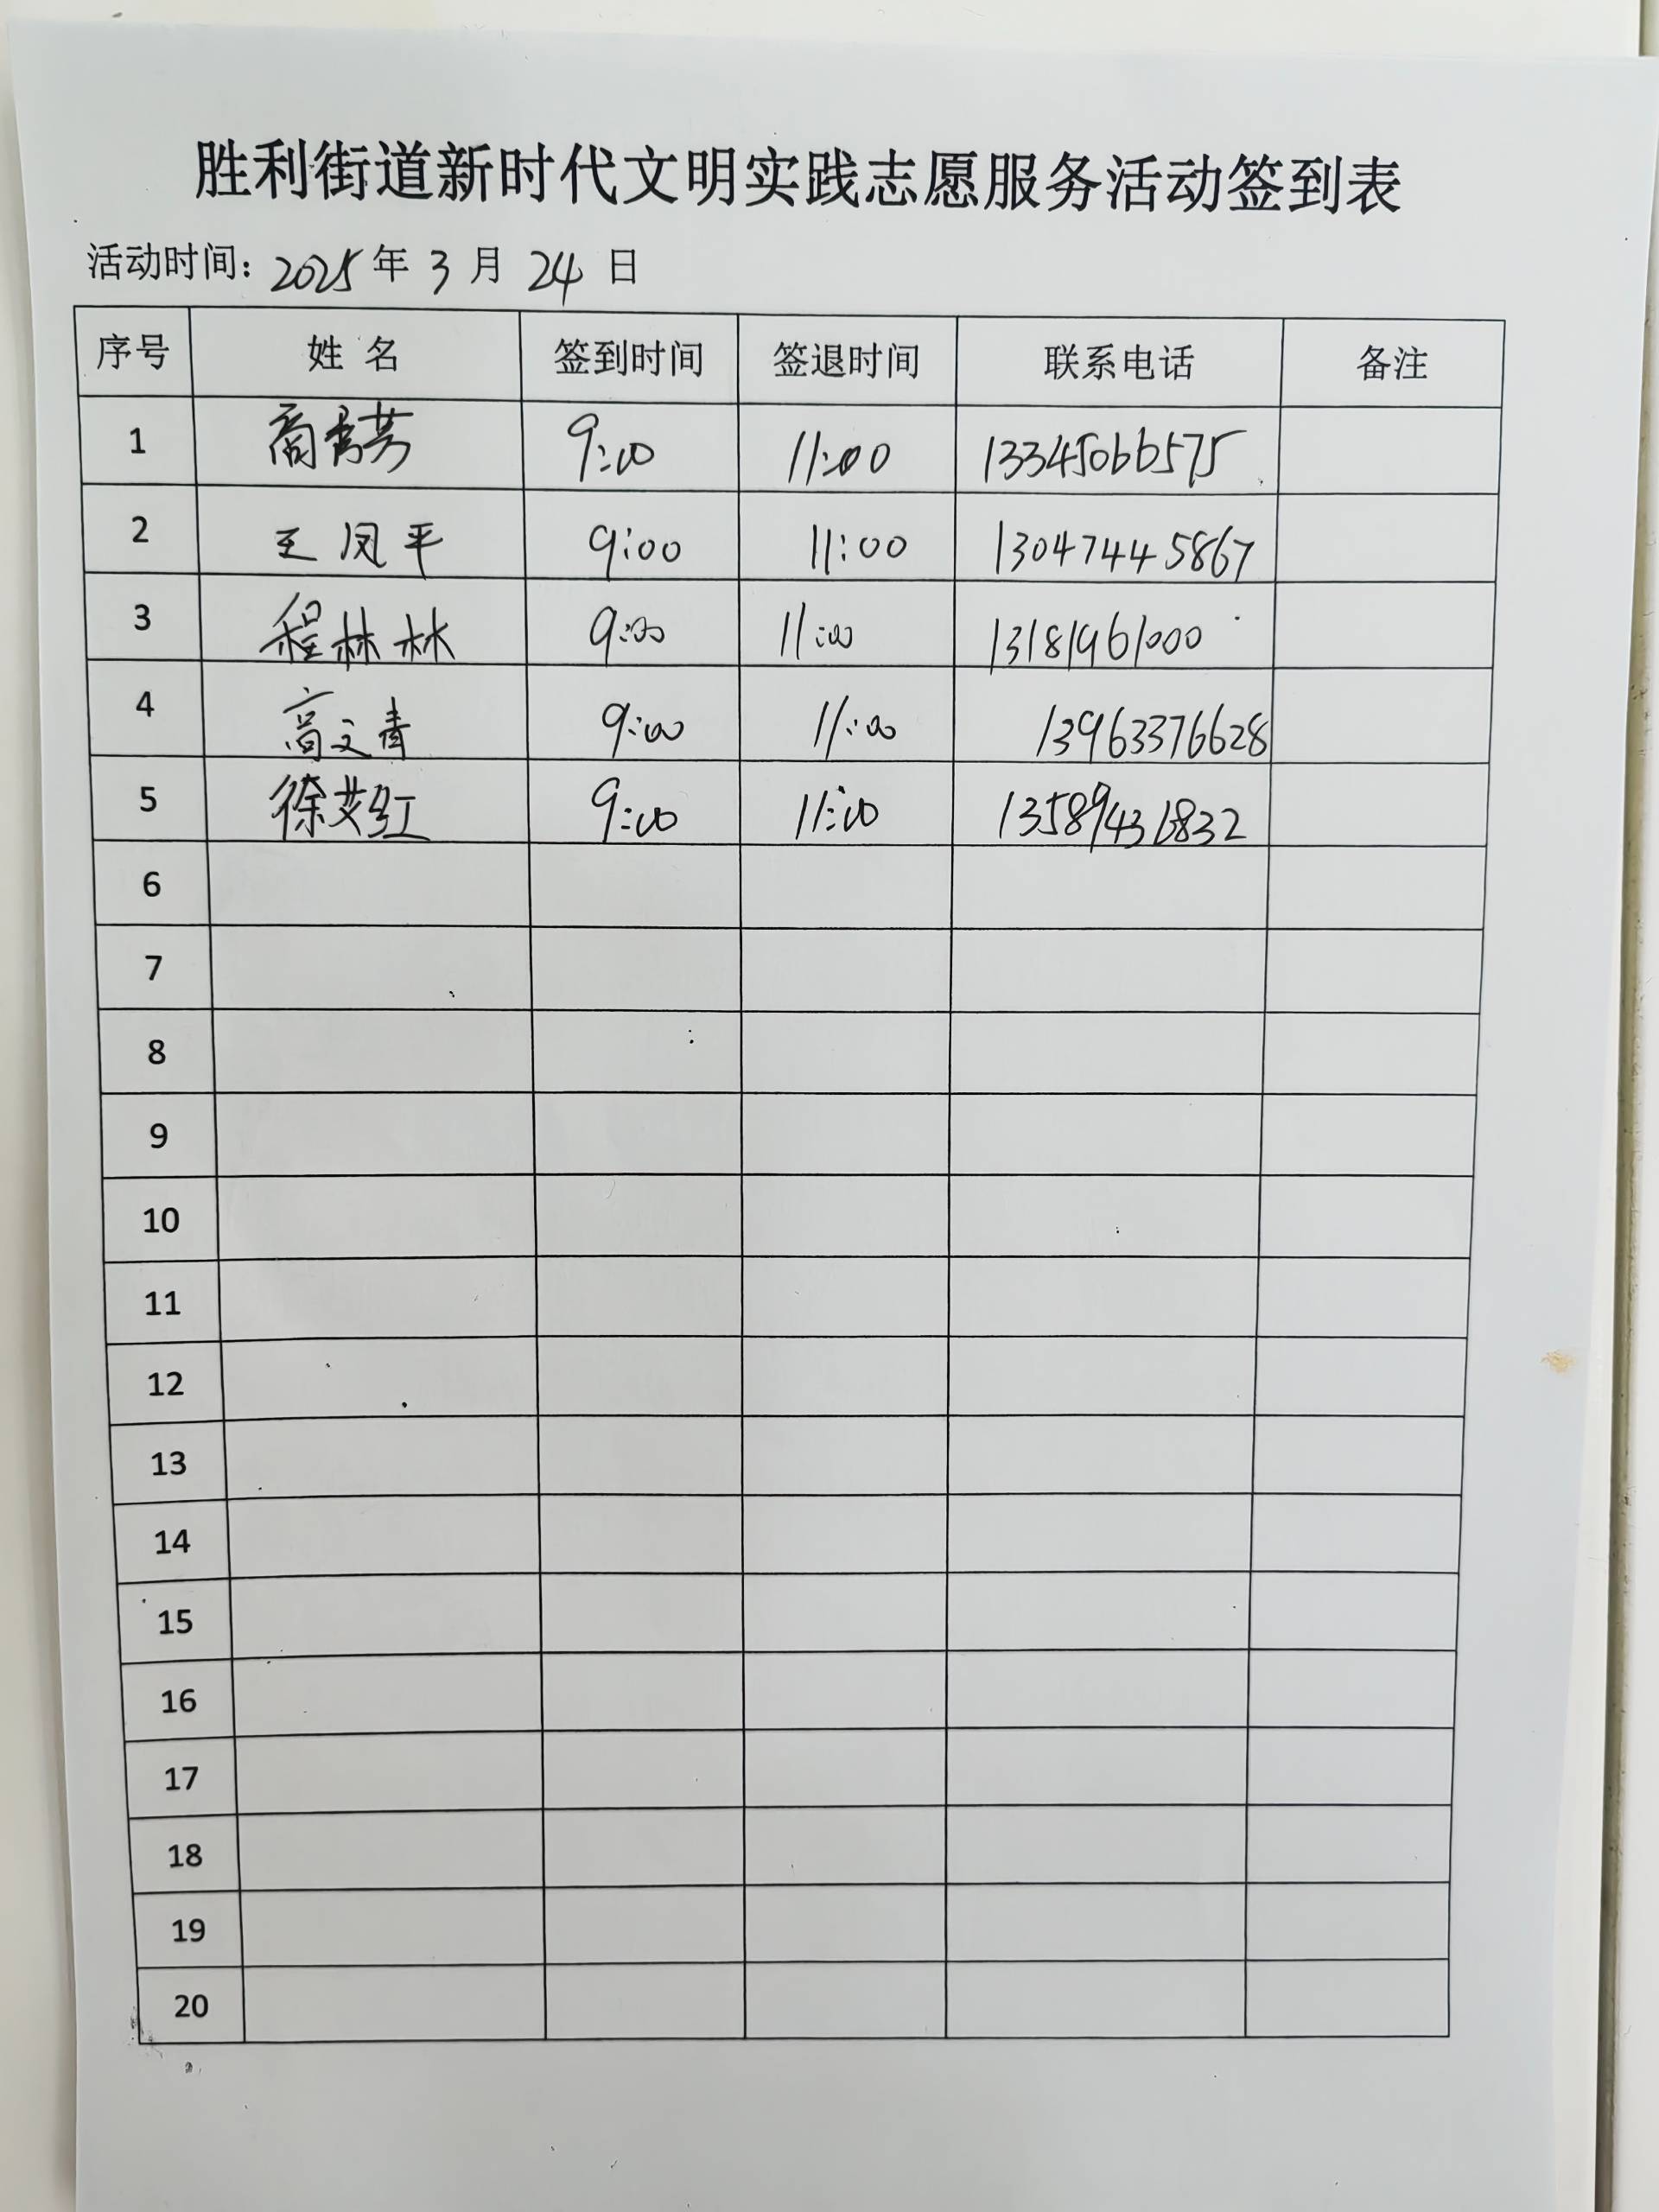 胜利街道新时代文明实践志愿服务活动签到表
活动时间：2025年3月24日
序号 姓名 签到时间 签退时间 联系电话 备注
1 9:00 11:00 13345066575
2 王凤平 9:00 11:00 13047445867
3 程林林 9:00 11:00 13181961000
4 高文青 9:00 11:00 13963376628
5 徐艾红 9:00 11:00
6
7
8
9
10
11
12
13
14
15
16
17
18
19
20